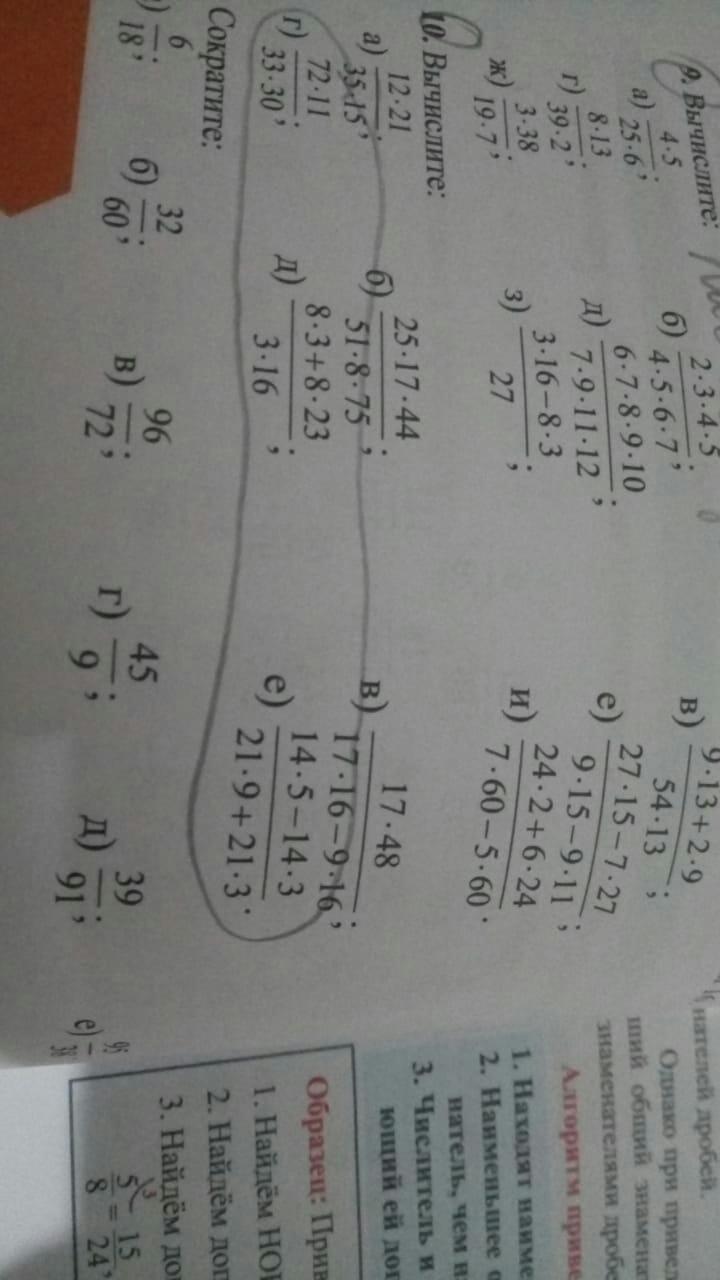 9. Вычислите:
а) 4·5/25·6; б) 2·3·4·5/4·5·6·7; в) 9·13+2·9/54·13;
г) 8·13/39·2; д) 6·7·8·9·10/7·9·11·12; е) 27·15−7·27/9·15−9·11;
ж) 3·38/19·7; з) 3·16−8·3/27; и) 24·2+6·24/7·60−5·60.
10. Вычислите:
а) 12·21/35·15; б) 25·17·44/51·8·75; в) 17·48/17·16−9·16;
г) 72·11/33·30; д) 8·3+8·23/3·16; е) 14·5−14·3/21·9+21·3.
Сократите:
) 6/18; б) 32/60; в) 96/72; г) 45/9; д) 39/91; е) 95/38
нателей дробей.
Однако при привед
ший общий знамена
знаменателями дробе
Алгоритм приве
1. Находят наиме
2. Наименьшее о
натель, чем н
3. Числитель и
ющий ей доп
Образец: Прив
1. Найдём НОК
2. Найдём доп
3. Найдём доп
5/8 ³ = 15/24,